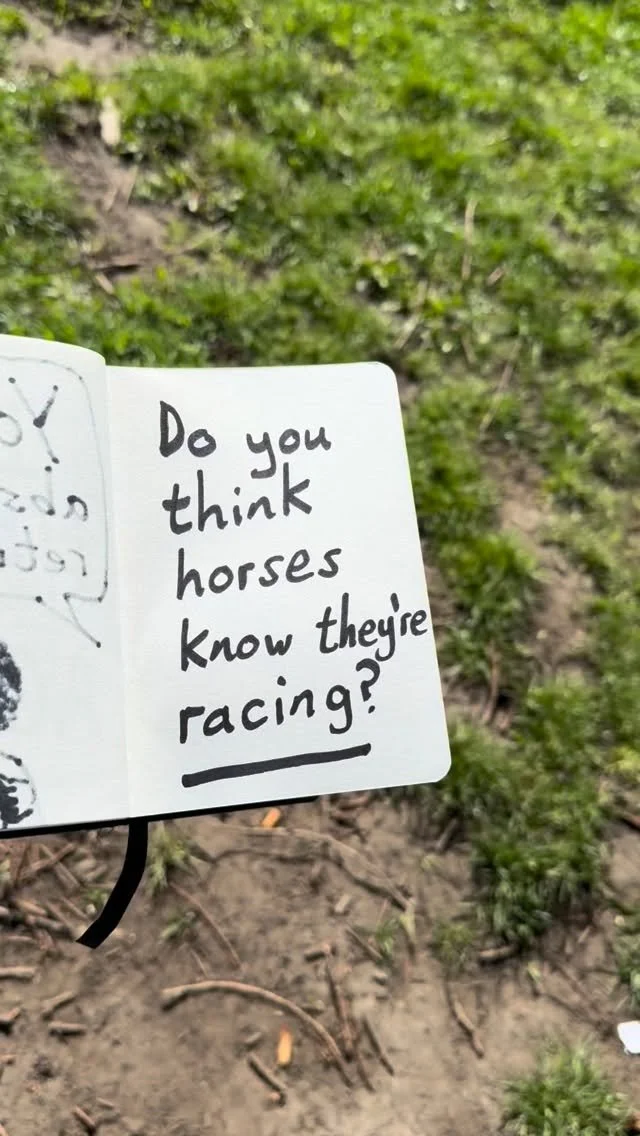 Do you
think
horses
know they're
racing?